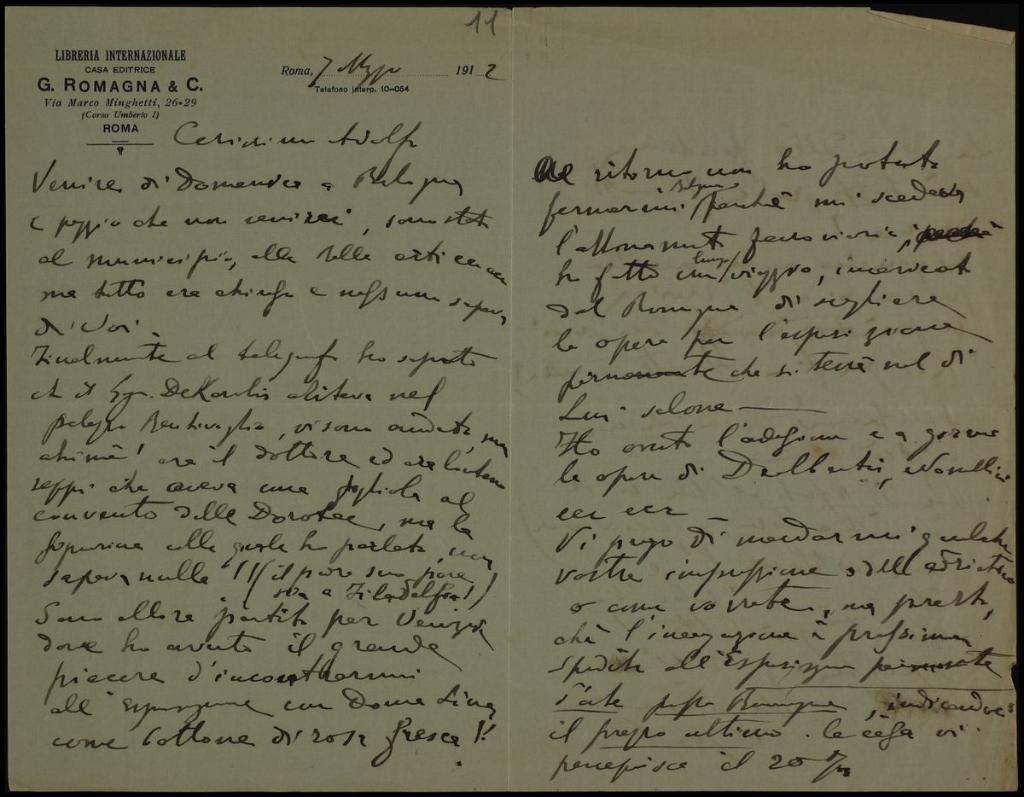 11
LIBRERIA INTERNAZIONALE
CASA EDITRICE
G. ROMAGNA & C.
Via Marco Minghetti, 26-29
(Corso Umberto I)
ROMA
Roma, 7 1912
Telefono interp. 10-054
Adolfo
Venire di Domenica a Bologna
è peggio che non venirci, sono stato
al municipio, alle belle arti ecc ecc
ma tutto era chiuso e nessuno sapeva
di voi.
Finalmente al telegrafo ho saputo
che il Sgr. DeKarolis abitava nel
palazzo Bentivoglio, vi sono andato, ma
ahimè! era il dottore ed era
seppi che aveva una figliola al
convento delle Dorotee, ma la
alla quale ho parlato, non
sapeva nulla!!! (
sta a Filadelfia!)
Sono allora partito per Venezia
dove ho avuto il grande
piacere d'incontrarmi
all'Esposizione con Donna Lina
come bottone di rosa fresca!!
Al ritorno non ho potuto
fermarmi Bologna perchè mi scadeva
l'abbonamento ferroviario,
ho fatto un lungo viaggio, incaricato
dal Romagna di scegliere
le opere per l'esposizione
permanente che si terrà nel di
Lui salone —
Ho avuto l'adesione e a giorni
le opere di Nomellini
ecc ecc
Vi prego di mandarmi qualche
vostra impressione
o come vorrete, ma presto,
chè l'inaugurazione è prossima
spedite all'Esposizione permanente
d'arte presso Romagna, indicandovi
il prezzo ultimo. la casa vi
percepisce il 20 %